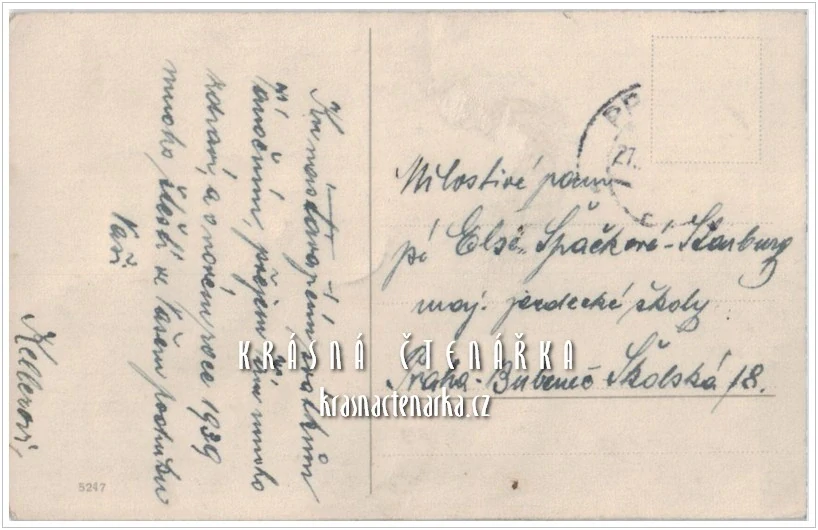 Ku nastávajícím svátkům
vánočním, přejem Vám mnoho
zdraví, a v novém roce 1939
mnoho štěstí ve Vašem podniku
Vaši
Kellerovi,
PR
27.
Milostivé paní
pí Else Špačkové-Starburg
maj. jezdecké školy
Praha-Bubeneč Školská 18.
KRÁSNÁ ČTENÁŘKA
krasnactenarka.cz
5247